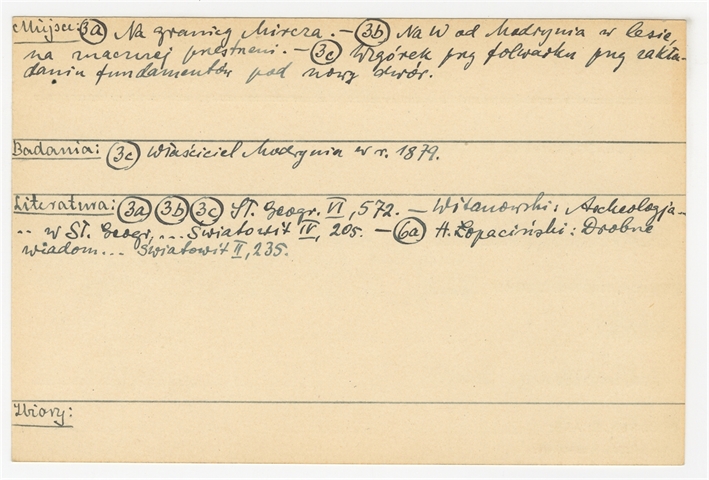 Miejsce: (3a) Na granicy Mircza. – (3b) Na W od Modrynia w lesie,
na znacznej przestrzeni. – (3c) Wzgórek przy folwarku przy zakła-
daniu fundamentów pod nowy dwór.
Badania: (3c) Właściciel Modrynia w r. 1879.
Literatura: (3a) (3b) (3c) Sł. Geogr. VI, 572. – Witanowski: Archeologja
.. w Sł. Geogr, ... Światowit IV, 205. – (6a) H. Łopaciński: Drobne
wiadom... Światowit II, 235.
Zbiory: